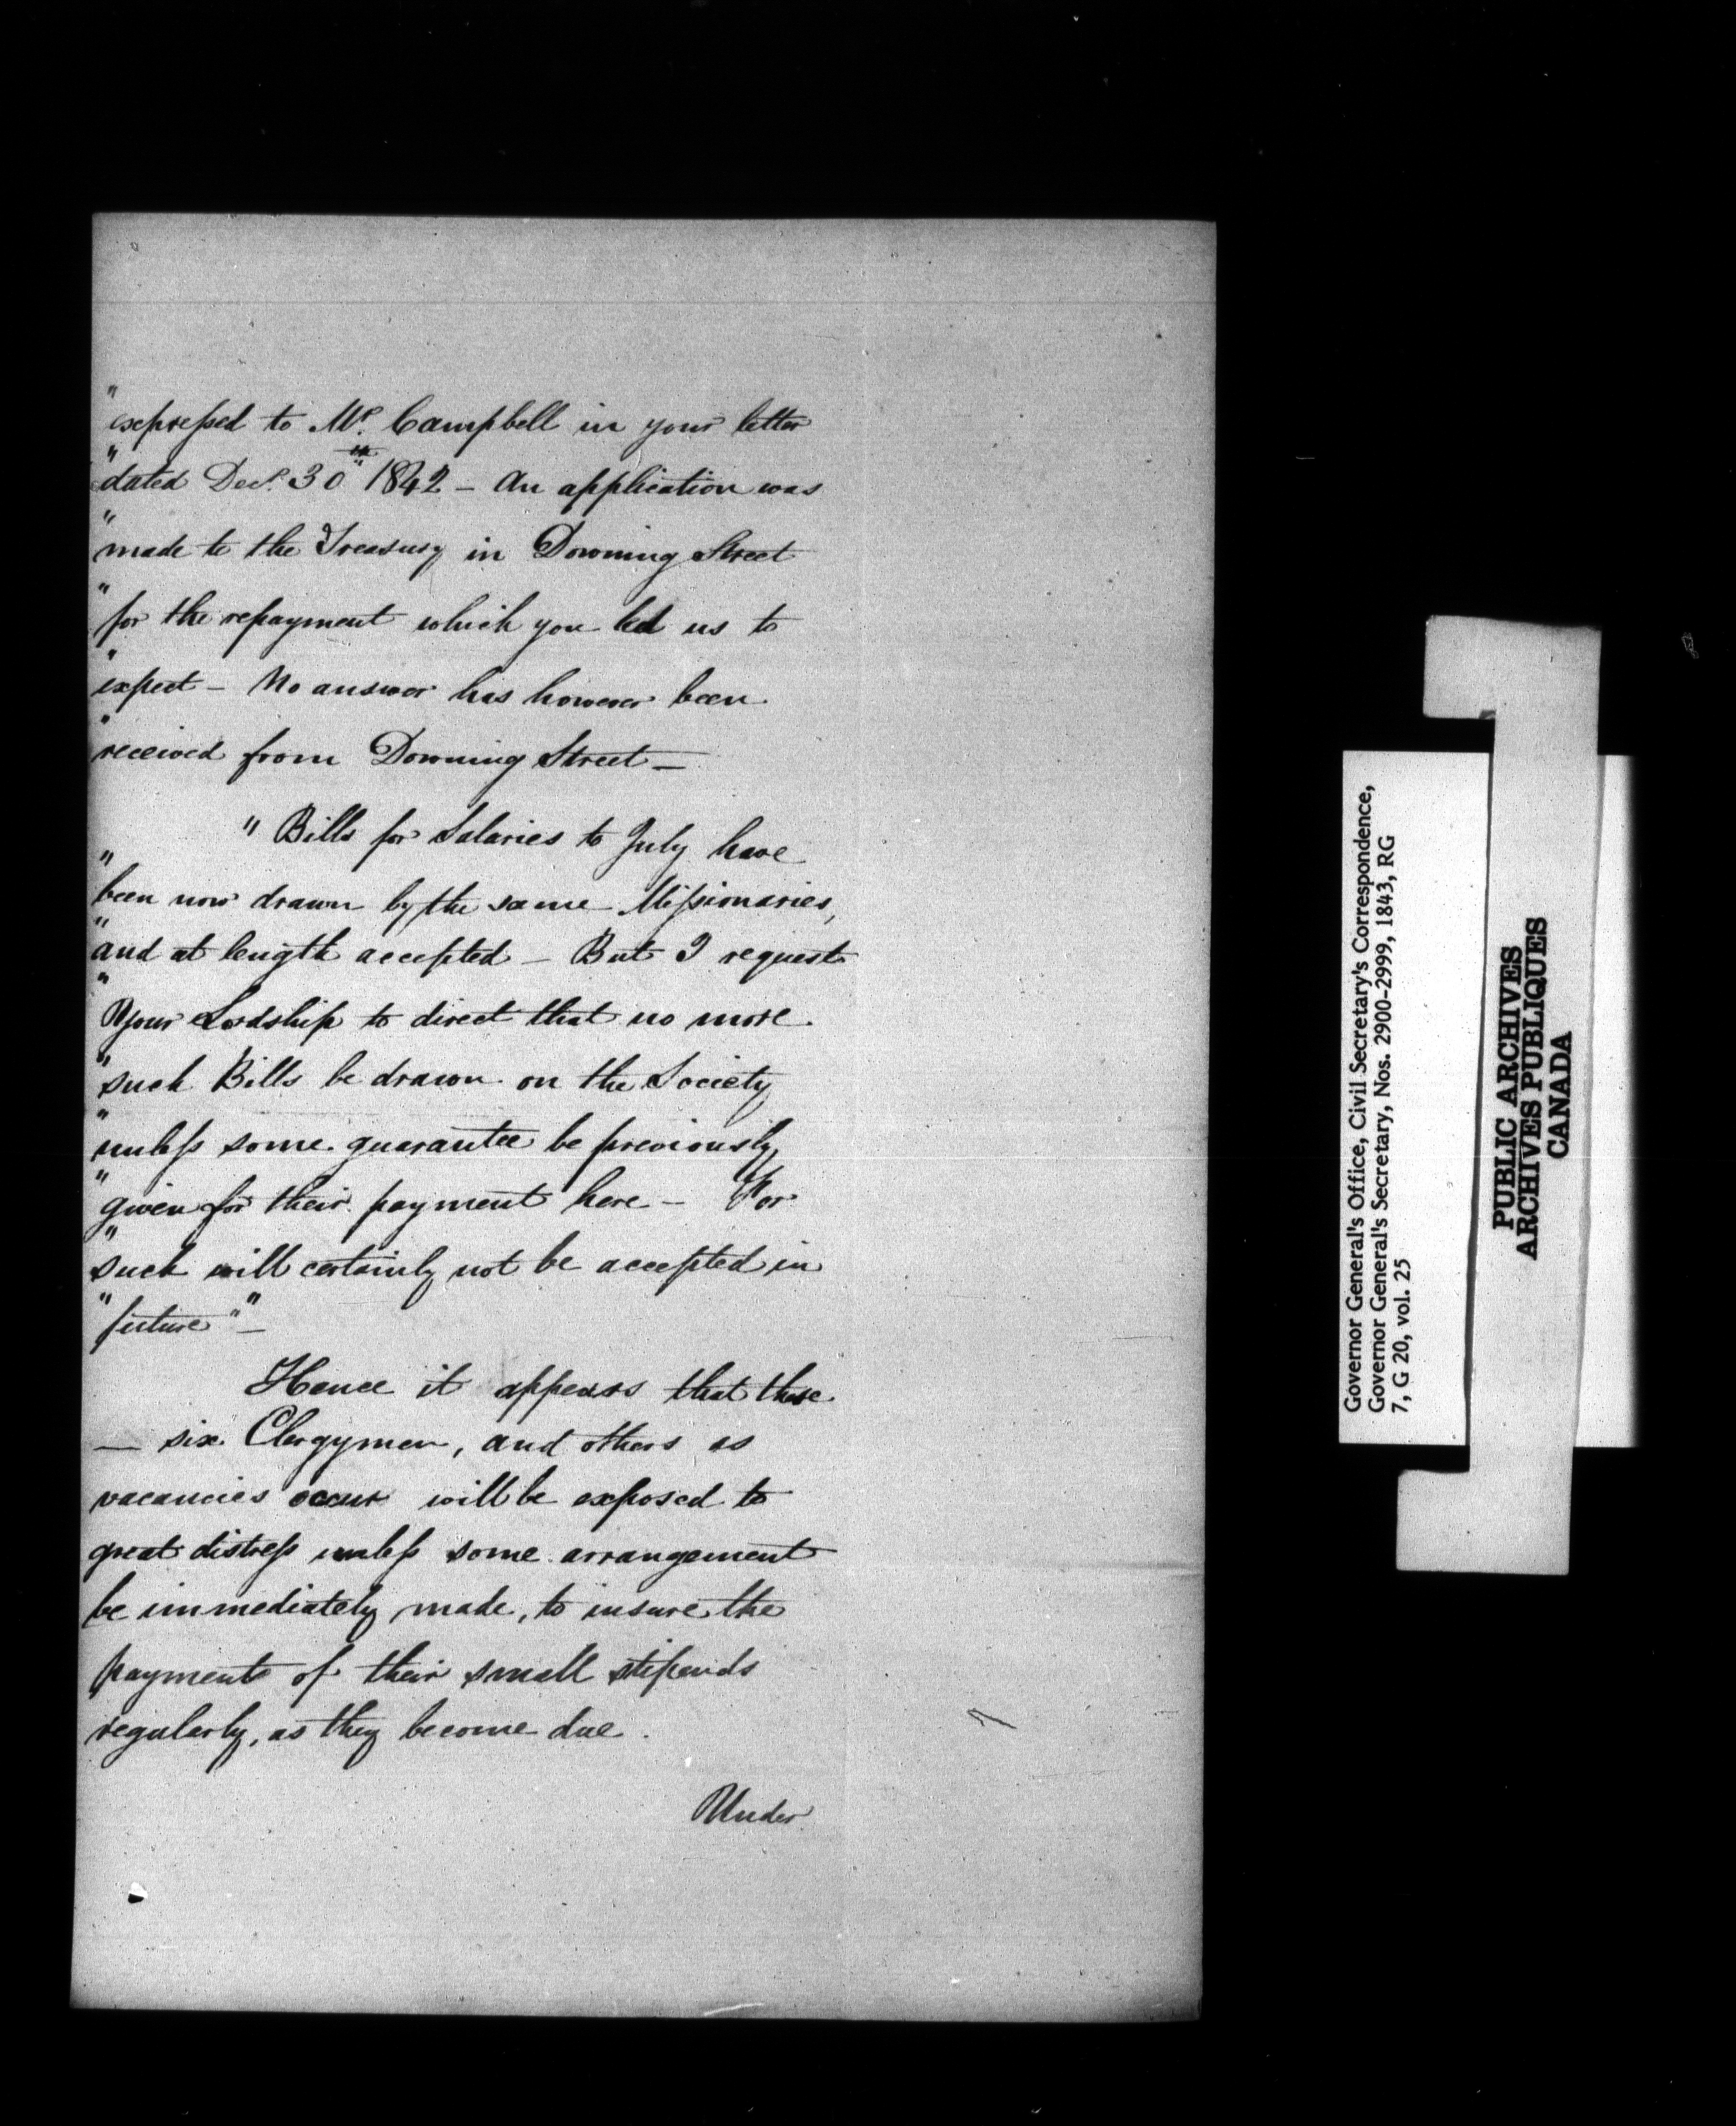 "expressed to Mr. Campbell in your letter
"dated Decr. 30th 1842 – An application was
"made to the Treasury in Downing Street
"for the repayment which you led us to
"expect – No answer has however been
"received from Downing Street –
"Bills for Salaries to July have
"been now drawn by the same Missionaries,
"and at length accepted – But I request
"Your Lordship to direct that no more
"such Bills be drawn on the Society
"unless some guarantee be previously
"given for their payment here – For
"such will certainly not be accepted in
"future" –
Hence it appears that these
— six Clergymen, and others as
vacancies occur will be exposed to
great distress unless some arrangement
be immediately made, to insure the
payments of their small stipends
regularly, as they become due.
Under
Governor General's Office, Civil Secretary's Correspondence,
Governor General's Secretary, Nos. 2900-2999, 1843, RG
7, G 20, vol. 25
PUBLIC ARCHIVES
ARCHIVES PUBLIQUES
CANADA